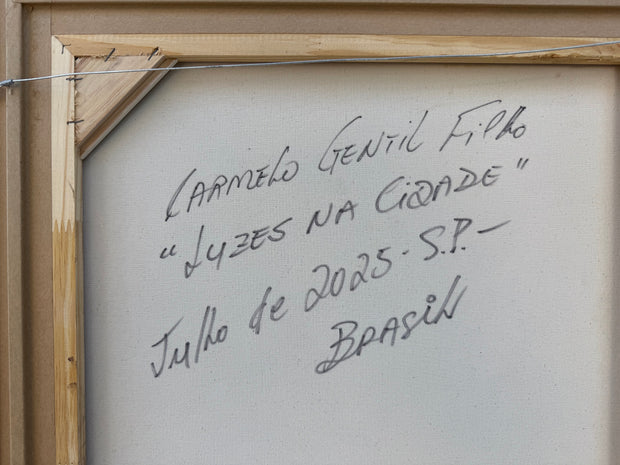 CARMELO GENTIL FILHO
"LUZES NA CIDADE"
Julho de 2025 - S.P. -
BRASIL